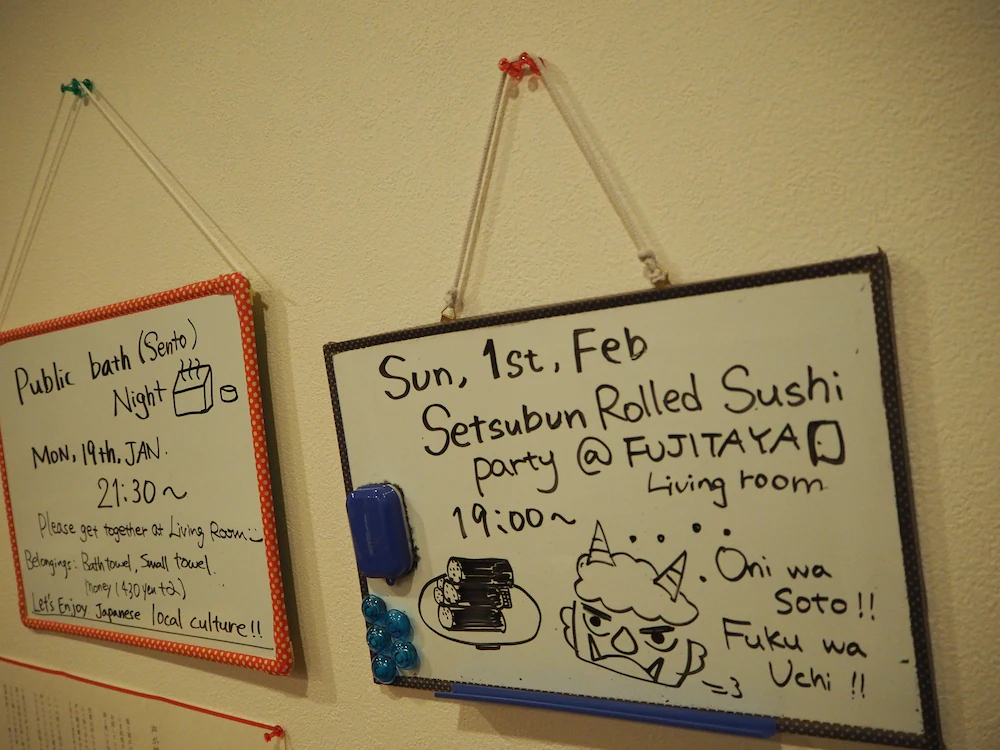 Public bath (Sento)
Night
Mon, 19th, JAN.
21:30~
Please get together at Living Room
Belongings: Bath towel, Small towel.
Money (430yen + α)
Let's Enjoy Japanese local culture!!
Sun, 1st, Feb
Setsubun Rolled Sushi
party @ FUJITAYA
Living room
19:00~
Oni wa
Soto!!
Fuku wa
Uchi!!